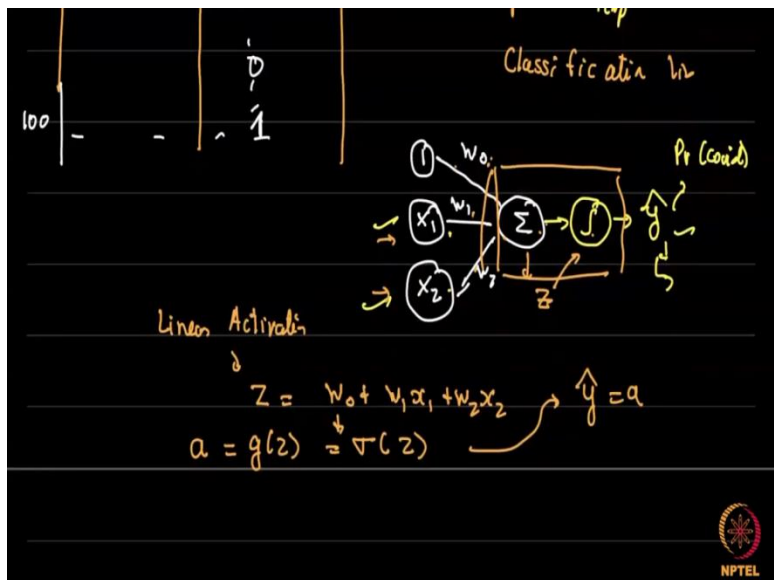 0
100 - - - 1
Classification
1 W0
Pr (covid)
X1 W1 Σ ∫ ŷ
X2 W2 Z
Linear Activation
Z = W0 + W1x1 + W2x2
ŷ = a
a = g(z) = σ(z)
NPTEL